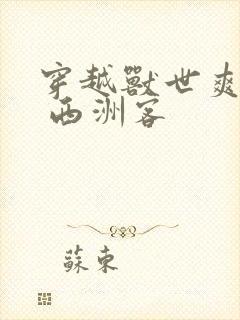 穿越獸世爽
西洲客
蘇東